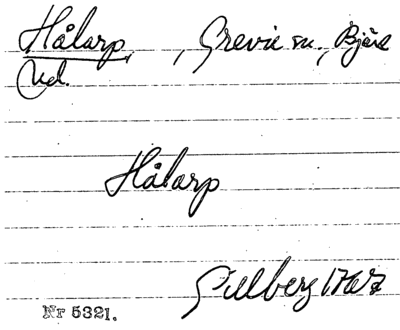 Hålarp, , Grevie sn., Bjäre
Hålarp
Gillberg 1767
Nr 5321.